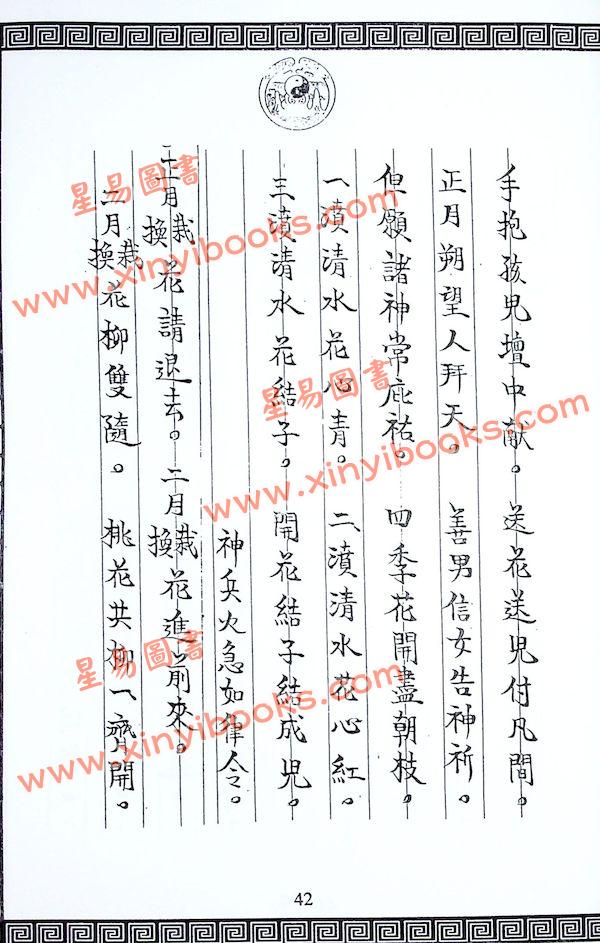 手抱孩兒壇中献。 送花送兒付凡間。
正月朔望人拜天。 善男信女告神祈。
但願諸神常庇祐。 四季花開盡朝枝。
一濆清水花心青。 二濆清水花心紅。
三濆清水花結子。 開花結子結成兒。
神兵火急如律令。
月栽換花請退去。 二月栽換花進前來。
二月栽換花柳雙隨。 桃花共柳一齊開。
42
星易圖書
www.xinyibooks.com
星易圖書
www.xinyibooks.com
星易圖書
www.xinyibooks.com